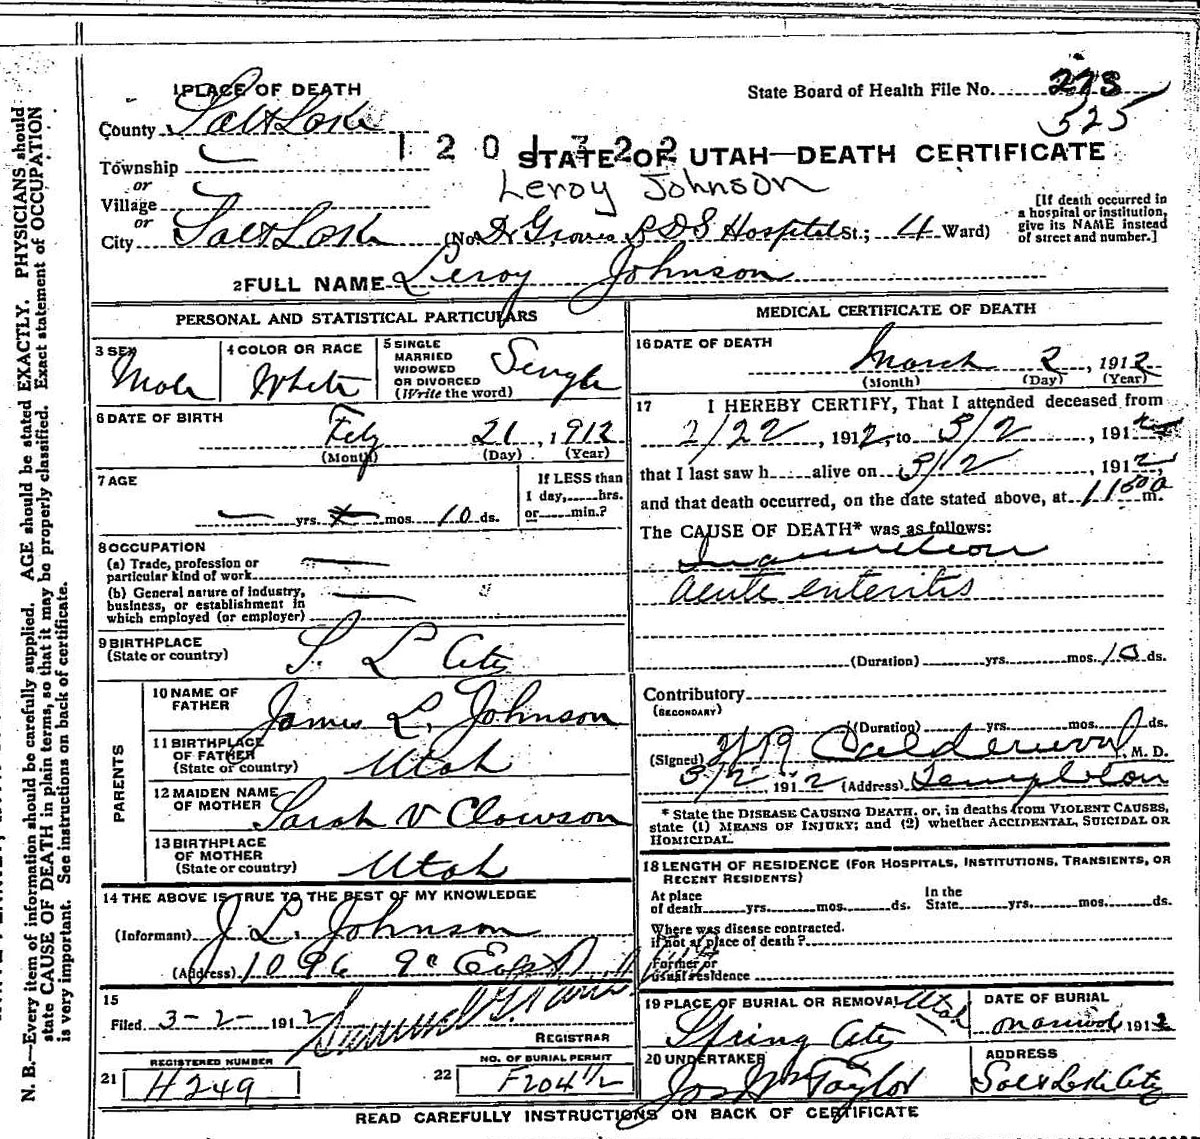 1 PLACE OF DEATH
State Board of Health File No. 273
525
County Salt Lake
1201322
STATE OF UTAH—DEATH CERTIFICATE
Township
Leroy Johnson
or
Village
or
City Salt Lake (No. Dr Groves L D S Hospital St.; 4 Ward)
[If death occurred in
a hospital or institution,
give its NAME instead
of street and number.]
2 FULL NAME Leroy Johnson
PERSONAL AND STATISTICAL PARTICULARS
3 SEX
Male
4 COLOR OR RACE
White
5 SINGLE
MARRIED
WIDOWED
OR DIVORCED
(Write the word)
Single
6 DATE OF BIRTH
Feby 21, 1912
(Month) (Day) (Year)
7 AGE
yrs. mos. 10 ds.
If LESS than
1 day, hrs.
or min.?
8 OCCUPATION
(a) Trade, profession or
particular kind of work
(b) General nature of industry,
business, or establishment in
which employed (or employer)
9 BIRTHPLACE
(State or country)
S. L City
PARENTS
10 NAME OF
FATHER
James L. Johnson
11 BIRTHPLACE
OF FATHER
(State or country)
Utah
12 MAIDEN NAME
OF MOTHER
Sarah V Clawson
13 BIRTHPLACE
OF MOTHER
(State or country)
Utah
14 THE ABOVE IS TRUE TO THE BEST OF MY KNOWLEDGE
(Informant) J L. Johnson
(Address) 1096 9th East
15
Filed 3-2- 1912
REGISTRAR
REGISTERED NUMBER
21 H249
NO. OF BURIAL PERMIT
22 F204 1/2
MEDICAL CERTIFICATE OF DEATH
16 DATE OF DEATH
March 2, 1912
(Month) (Day) (Year)
17 I HEREBY CERTIFY, That I attended deceased from
2/22, 1912, to 3/2, 1912
that I last saw h alive on 3/2, 1912,
and that death occurred, on the date stated above, at 11 00 a m.
The CAUSE OF DEATH* was as follows:
Inanition
acute enteritis
(Duration) yrs. mos. 10 ds.
Contributory
(SECONDARY)
(Duration) yrs. mos. ds.
(Signed) Calderwood, M. D.
3/2, 1912 (Address) Templeton
* State the DISEASE CAUSING DEATH, or, in deaths from VIOLENT CAUSES,
state (1) MEANS OF INJURY; and (2) whether ACCIDENTAL, SUICIDAL or
HOMICIDAL.
18 LENGTH OF RESIDENCE (FOR HOSPITALS, INSTITUTIONS, TRANSIENTS, OR
RECENT RESIDENTS)
At place
of death yrs. mos. ds.
In the
State yrs. mos. ds.
Where was disease contracted.
if not at place of death?
Former or
usual residence
19 PLACE OF BURIAL OR REMOVAL Utah
Spring City
DATE OF BURIAL
1912
20 UNDERTAKER
Jos Wm Taylor
ADDRESS
Salt Lake City
READ CAREFULLY INSTRUCTIONS ON BACK OF CERTIFICATE
N. B.—Every item of information should be carefully supplied. AGE should be stated EXACTLY. PHYSICIANS should
state CAUSE OF DEATH in plain terms, so that it may be properly classified. Exact statement of OCCUPATION
is very important. See instructions on back of certificate.